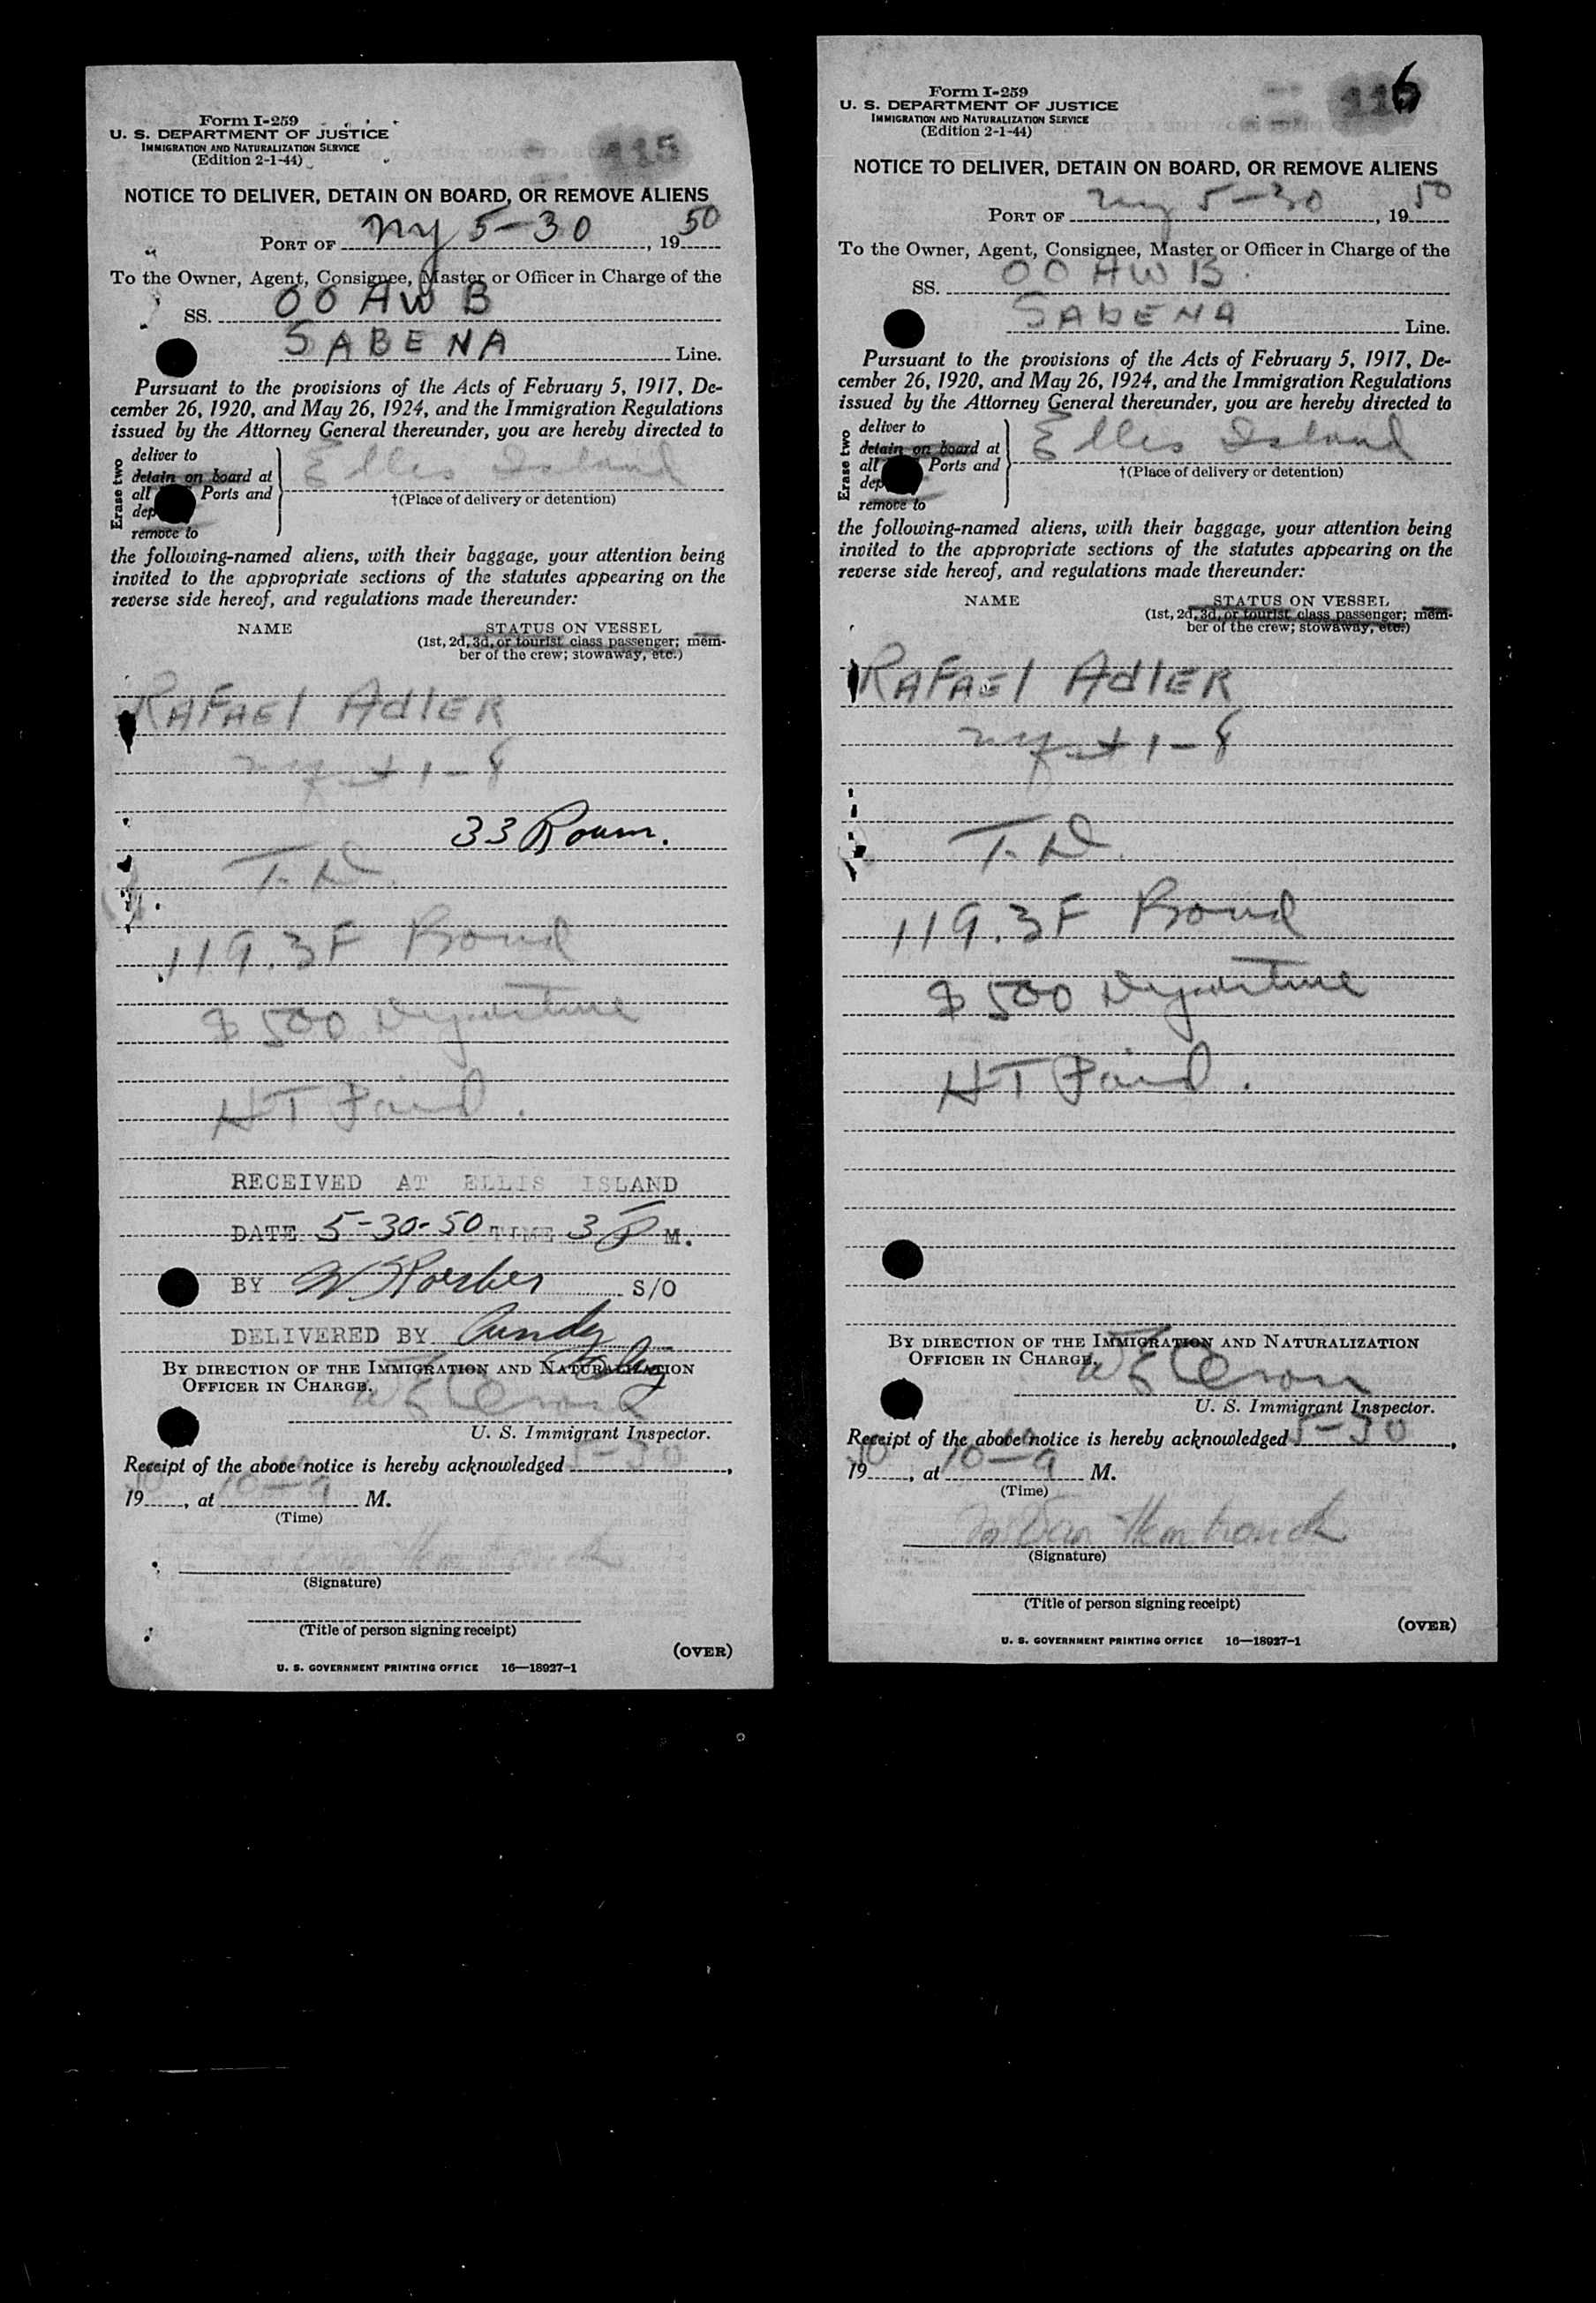 Form I-259
U. S. DEPARTMENT OF JUSTICE
IMMIGRATION AND NATURALIZATION SERVICE
(Edition 2-1-44)
115
NOTICE TO DELIVER, DETAIN ON BOARD, OR REMOVE ALIENS
PORT OF NY 5-30, 1950
To the Owner, Agent, Consignee, Master or Officer in Charge of the
SS. OO AWB
SABENA Line.
Pursuant to the provisions of the Acts of February 5, 1917, De-
cember 26, 1920, and May 26, 1924, and the Immigration Regulations
issued by the Attorney General thereunder, you are hereby directed to
Erase two
deliver to
detain on board at
all Ports and
dep
remove to
Ellis Island
†(Place of delivery or detention)
the following-named aliens, with their baggage, your attention being
invited to the appropriate sections of the statutes appearing on the
reverse side hereof, and regulations made thereunder:
NAME STATUS ON VESSEL
(1st, 2d, 3d, or tourist class passenger; mem-
ber of the crew; stowaway, etc.)
RAFAEl AdlER
1-8
33 Room.
T. D.
119.3F Bond
$500 Departure
HT Paid.
RECEIVED AT ELLIS ISLAND
DATE 5-30-50 TIME 3 P M.
BY S/O
DELIVERED BY
BY DIRECTION OF THE IMMIGRATION AND NATURALIZATION
OFFICER IN CHARGE.
U. S. Immigrant Inspector.
Receipt of the above notice is hereby acknowledged 5-30,
1950, at 10-a M.
(Time)
(Signature)
(Title of person signing receipt)
(OVER)
U. S. GOVERNMENT PRINTING OFFICE 16—18927-1
Form I-259
U. S. DEPARTMENT OF JUSTICE
IMMIGRATION AND NATURALIZATION SERVICE
(Edition 2-1-44)
116
NOTICE TO DELIVER, DETAIN ON BOARD, OR REMOVE ALIENS
PORT OF NY 5-30, 1950
To the Owner, Agent, Consignee, Master or Officer in Charge of the
SS. OO AWB
SABENA Line.
Pursuant to the provisions of the Acts of February 5, 1917, De-
cember 26, 1920, and May 26, 1924, and the Immigration Regulations
issued by the Attorney General thereunder, you are hereby directed to
Erase two
deliver to
detain on board at
all Ports and
dep
remove to
Ellis Island
†(Place of delivery or detention)
the following-named aliens, with their baggage, your attention being
invited to the appropriate sections of the statutes appearing on the
reverse side hereof, and regulations made thereunder:
NAME STATUS ON VESSEL
(1st, 2d, 3d, or tourist class passenger; mem-
ber of the crew; stowaway, etc.)
RAFAEl AdlER
1-8
T. D.
119.3F Bond
$500 Departure
HT Paid.
BY DIRECTION OF THE IMMIGRATION AND NATURALIZATION
OFFICER IN CHARGE.
U. S. Immigrant Inspector.
Receipt of the above notice is hereby acknowledged 5-30,
1950, at 10-a M.
(Time)
(Signature)
(Title of person signing receipt)
(OVER)
U. S. GOVERNMENT PRINTING OFFICE 16—18927-1